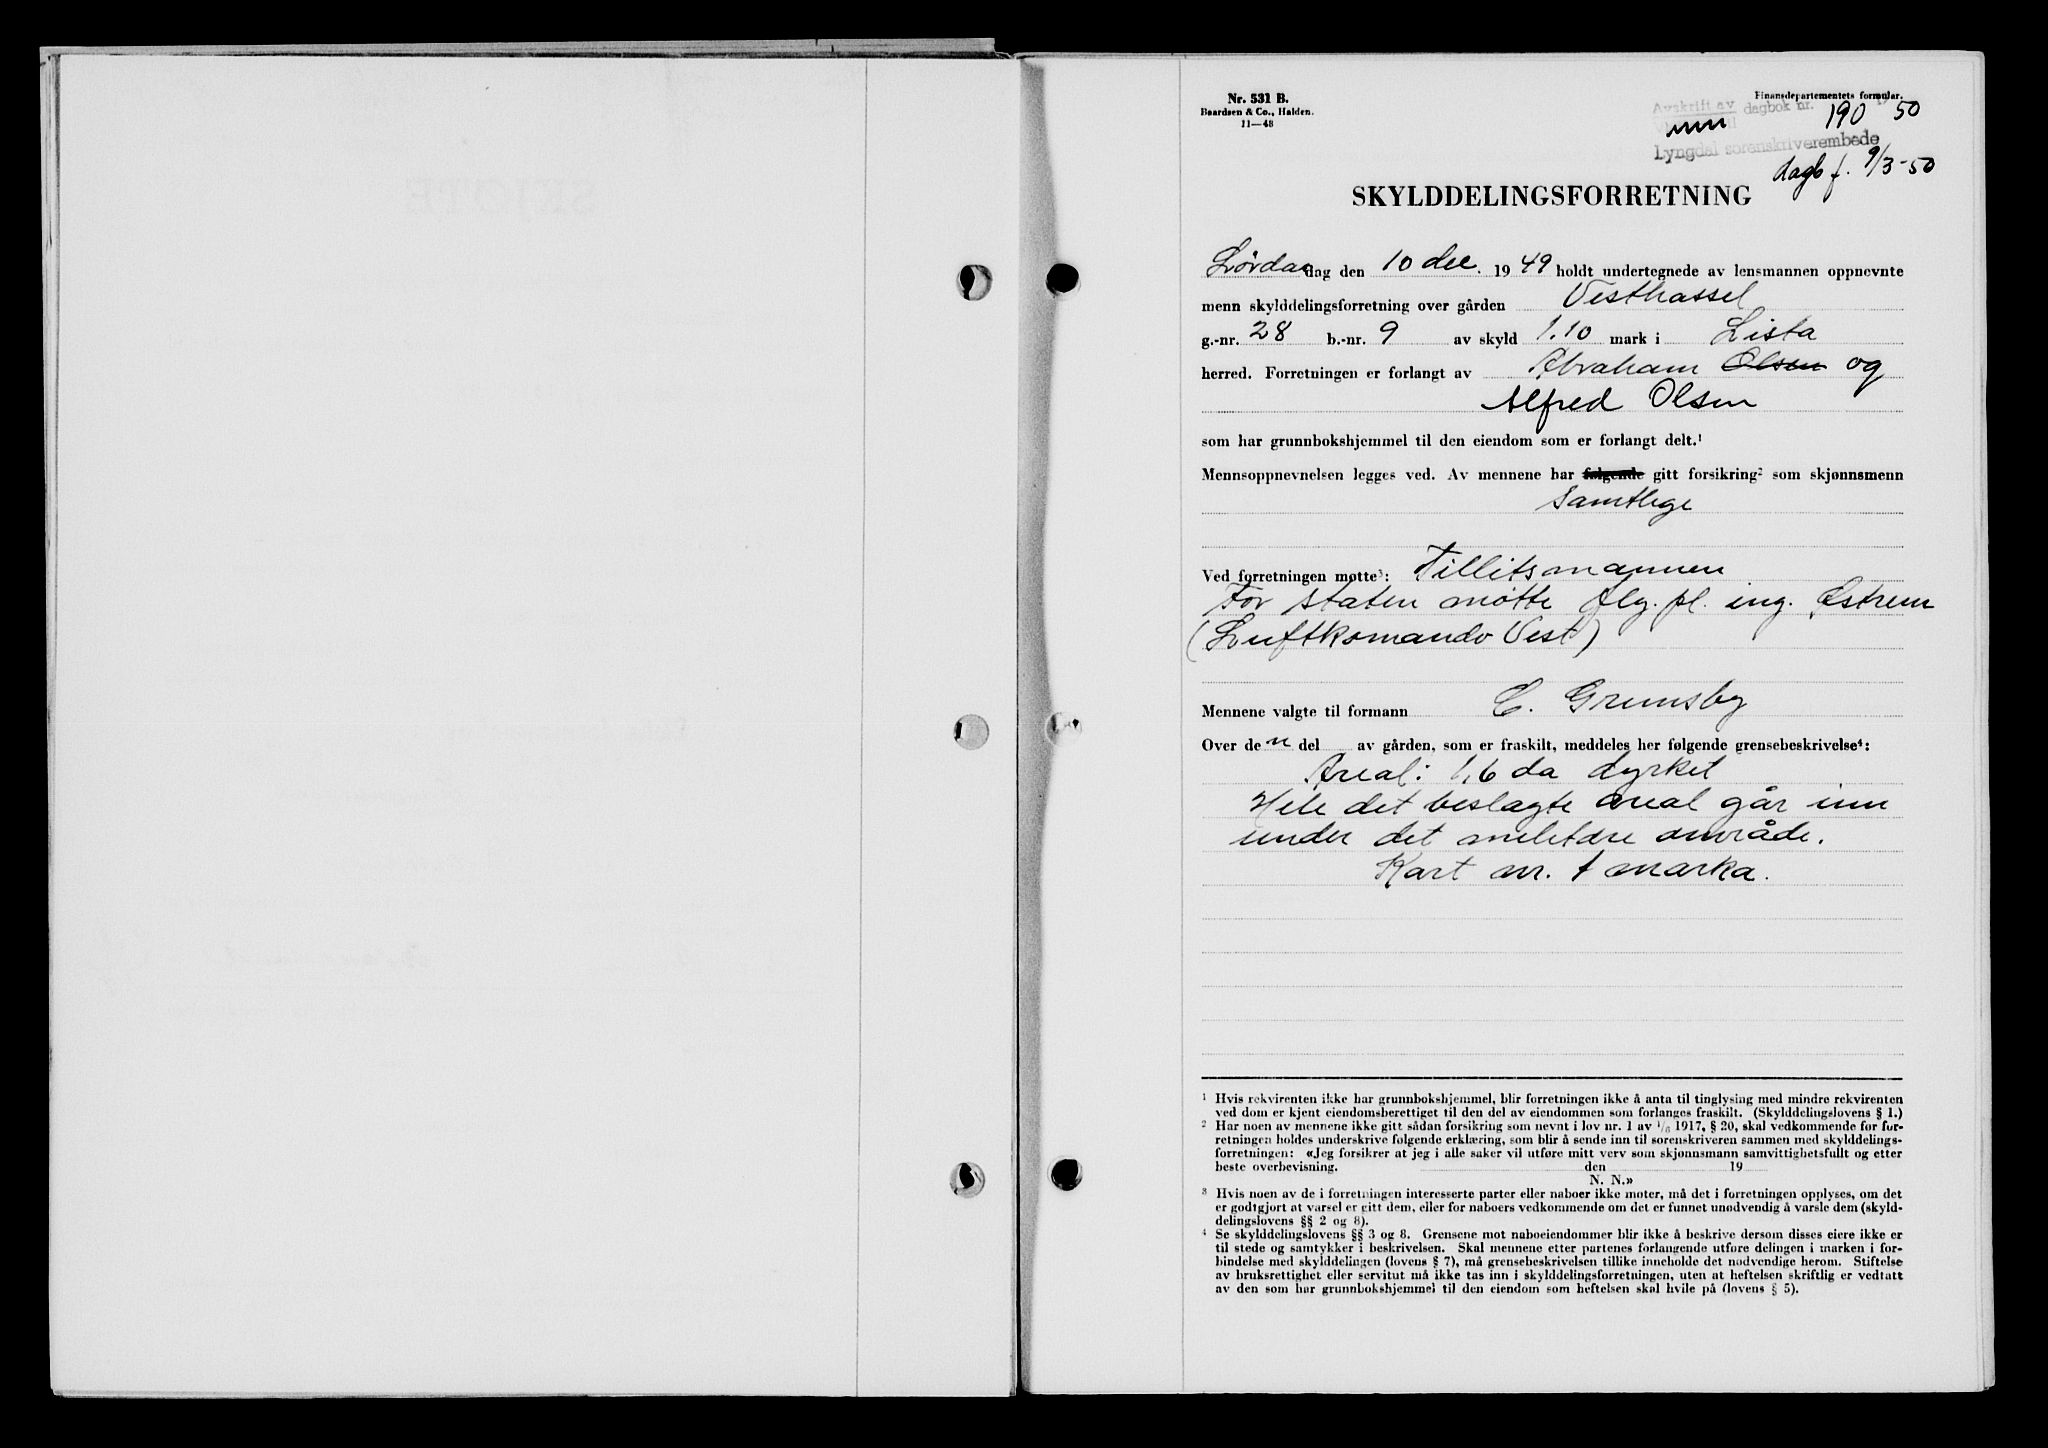 Nr. 531 B.
Baardsen & Co., Halden.
11—48
Finansdepartementets formular.
Avskrift av dagbok nr. 190 50
Lyngdal sorenskriverembede
dagb f. 9/3-50
SKYLDDELINGSFORRETNING
Lördag dag den 10 dec. 1949 holdt undertegnede av lensmannen oppnevnte
menn skylddelingsforretning over gården Vesthassel
g.-nr. 28 b.-nr. 9 av skyld 1.10 mark i Lista
herred. Forretningen er forlangt av Abraham Olsen og
Alfred Olsen
som har grunnbokshjemmel til den eiendom som er forlangt delt.¹
Mennsoppnevnelsen legges ved. Av mennene har følgende gitt forsikring² som skjønnsmenn
Samtlige
Ved forretningen møtte³: Tillitsmannen
For staten møtte flg. pl. ing. Østrem
(Luftkomando Vest)
Mennene valgte til formann C. Grimsby
Over den del av gården, som er fraskilt, meddeles her følgende grensebeskrivelse⁴:
Areal: 1,6 da dyrket
Hele det beslagte areal går inn
under det miletære område.
Kart nr. 1 marka.
¹ Hvis rekvirenten ikke har grunnbokshjemmel, blir forretningen ikke å anta til tinglysing med mindre rekvirenten
ved dom er kjent eiendomsberettiget til den del av eiendommen som forlanges fraskilt. (Skylddelingslovens § 1.)
² Har noen av mennene ikke gitt sådan forsikring som nevnt i lov nr. 1 av 1/6 1917, § 20, skal vedkommende før for-
retningen holdes underskrive følgende erklæring, som blir å sende inn til sorenskriveren sammen med skylddelings-
forretningen: «Jeg forsikrer at jeg i alle saker vil utføre mitt verv som skjønnsmann samvittighetsfullt og etter
beste overbevisning. den 19
N. N.»
³ Hvis noen av de i forretningen interesserte parter eller naboer ikke møter, må det i forretningen opplyses, om det
er godtgjort at varsel er gitt dem, eller for naboers vedkommende om det er funnet unødvendig å varsle dem (skyld-
delingslovens §§ 2 og 8).
⁴ Se skylddelingslovens §§ 3 og 8. Grensene mot naboeiendommer blir ikke å beskrive dersom disses eiere ikke er
til stede og samtykker i beskrivelsen. Skal mennene etter partenes forlangende utføre delingen i marken i for-
bindelse med skylddelingen (lovens § 7), må grensebeskrivelsen tillike inneholde det nødvendige herom. Stiftelse
av bruksrettighet eller servitut må ikke tas inn i skylddelingsforretningen, uten at heftelsen skriftlig er vedtatt
av den som har grunnbokshjemmel til den eiendom som heftelsen skal hvile på (lovens § 5).